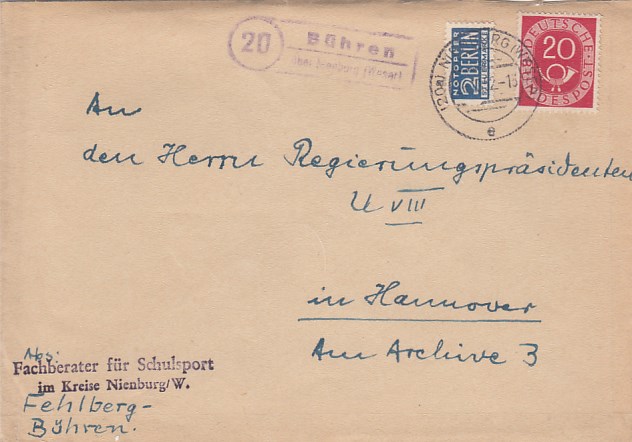 20 Bühren
über Nienburg (Weser)
NOTOPFER
2 BERLIN
STEUERMARKE
DEUTSCHE
20
BUNDESPOST
(20a) NIENBURG (WESER)
e
An
den Herrn Regierungspräsidenten
U VIII
in Hannover
Am Archive 3
Abs:
Fachberater für Schulsport
im Kreise Nienburg/W.
Fehlberg-
Bühren.